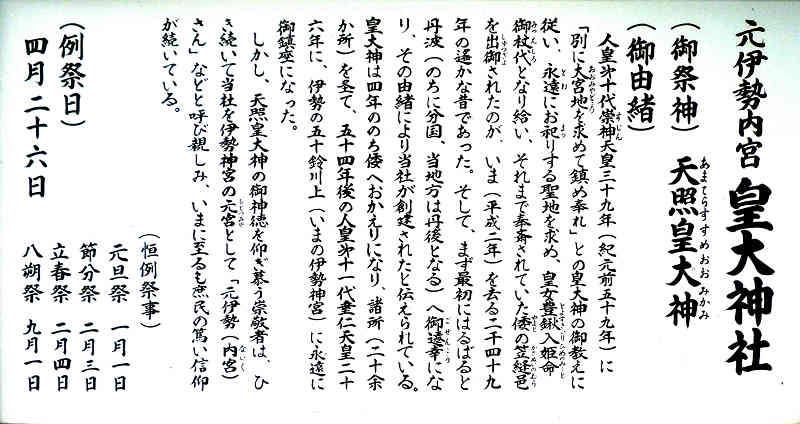 元伊勢内宮 皇大神社
(御祭神) 天照皇大神
あまてらすすめおおみかみ
(御由緒)
人皇第十代崇神天皇三十九年(紀元前五十九年)に
「別に大宮地を求めて鎮め奉れ」との皇大神の御教えに
従い、永遠にお祀りする聖地を求め、皇女豊鍬入姫命
御杖代となり給い、それまで奉斎されていた倭の笠縫邑
を出御されたのが、いま(平成二年)を去る二千四十九
年の遙かな昔であった。そして、まず最初にはるばると
丹波(のちに分国、当地方は丹後となる)へ御遷幸にな
り、その由緒により当社が創建されたと伝えられている。
皇大神は四年ののち倭へおかえりになり、諸所(二十余
か所)を経て、五十四年後の人皇第十一代垂仁天皇二十
六年に、伊勢の五十鈴川上(いまの伊勢神宮)に永遠に
御鎮座になった。
しかし、天照皇大神の御神徳を仰ぎ慕う崇敬者は、ひ
き続いて当社を伊勢神宮の元宮として「元伊勢(内宮)
さん」などと呼び親しみ、いまに至るも庶民の篤い信仰
が続いている。
(恒例祭事)
元旦祭 一月一日
節分祭 二月三日
立春祭 二月四日
八朔祭 九月一日
(例祭日)
四月二十六日